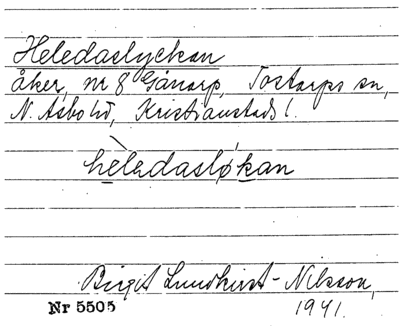 Heledaslyckan
åker, nr 8 Gånarp, Tostarps sn,
N. Åsbo hd, Kristianstads l.
hèledasløkan
Birgit Lundkvist-Nilsson,
Nr 5505 1941.